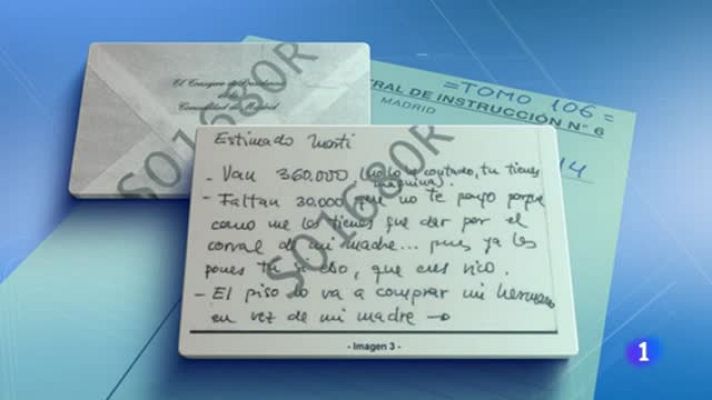 El Consejero de Presidencia
de la
Comunidad de Madrid
SO1680R
=TOMO 106=
RAL DE INSTRUCCIÓN Nº 6
MADRID
14
Estimado
- Van 360.000 (no lo he contado, tu tienes
maquina).
- Faltan 30.000 que no te pongo porque
como me los tienes que dar por el
corral de mi madre... pues ya los
pones tu
eso, que eres rico.
- El piso lo va a comprar mi hermano
en vez de mi madre →
SO1680R
- Imagen 3 -
1